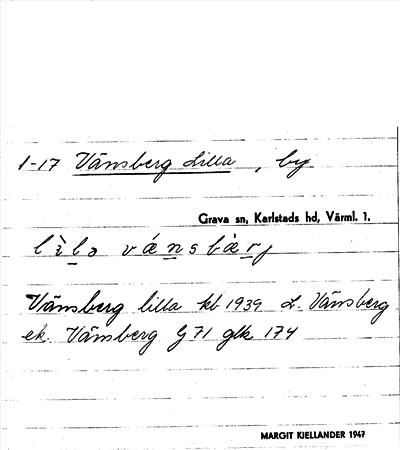 1-17 Vänsberg Lilla, by
Grava sn, Karlstads hd, Värml. l.
lìlə vǽnsbærj
Vänsberg lilla kb 1939 L. Vänsberg
ek. Vänsberg G 71 glk 174
MARGIT KIELLANDER 1947